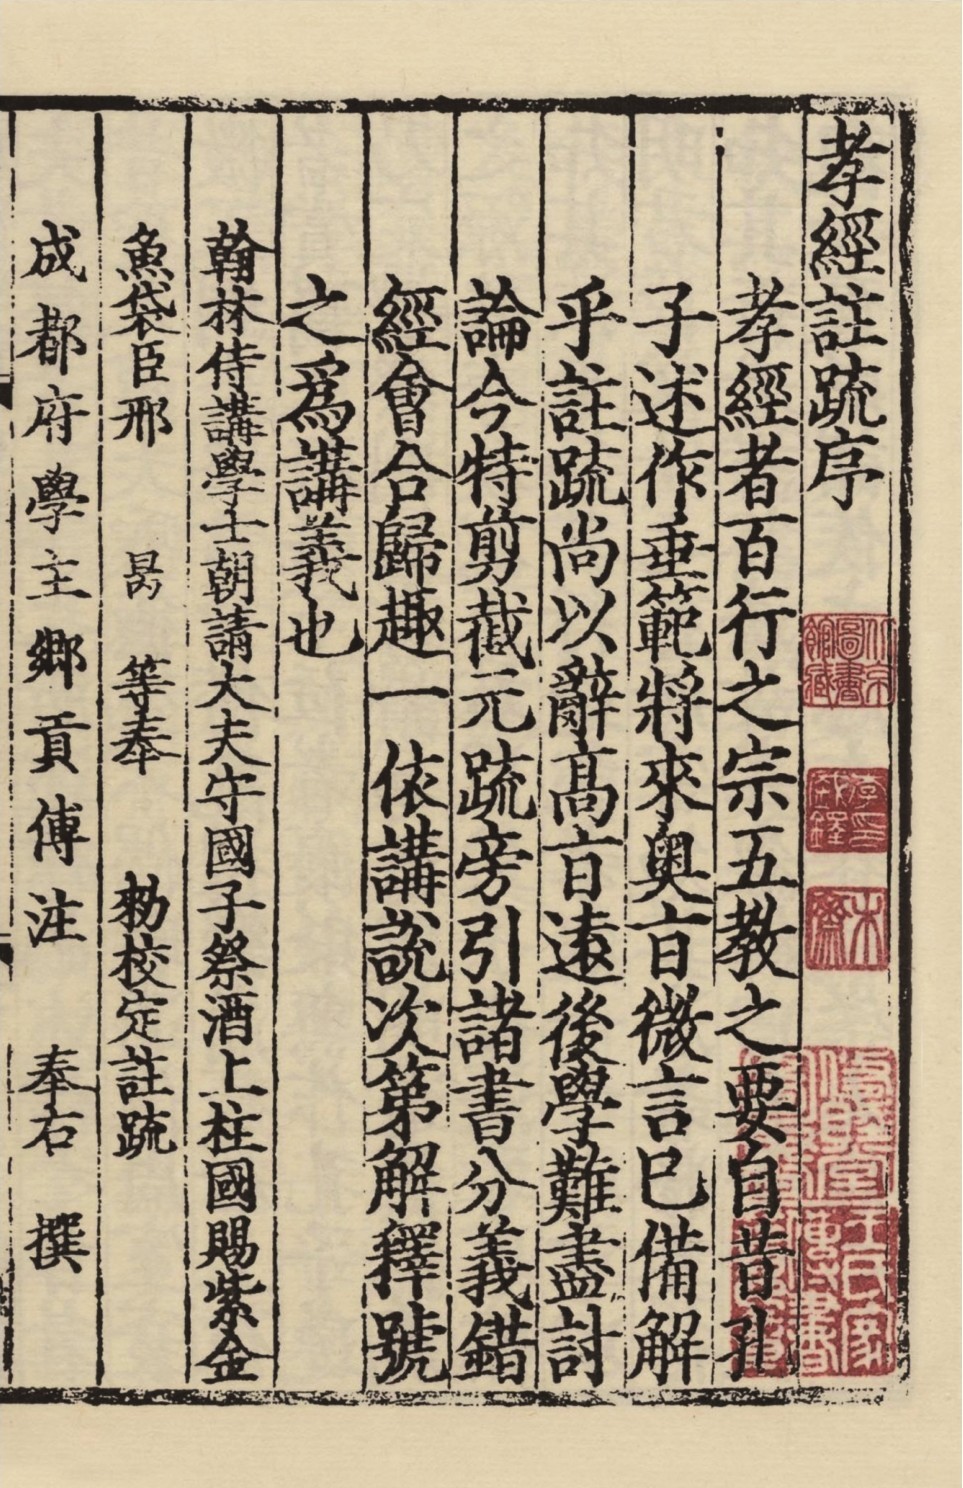 孝經註疏序
孝經者百行之宗五教之要自昔孔
子述作垂範將來奥㫖微言已備解
乎註疏尚以辭髙㫖遠後學難盡討
論今特剪截元疏旁引諸書分義錯
經㑹合歸趣一依講說次第解釋號
之爲講義也
翰林侍講學士朝請大夫守國子祭酒上柱國賜紫金
魚袋臣邢昺等奉勑校定註疏
成都府學主鄉貢傅注奉右撰
北京圖書館藏